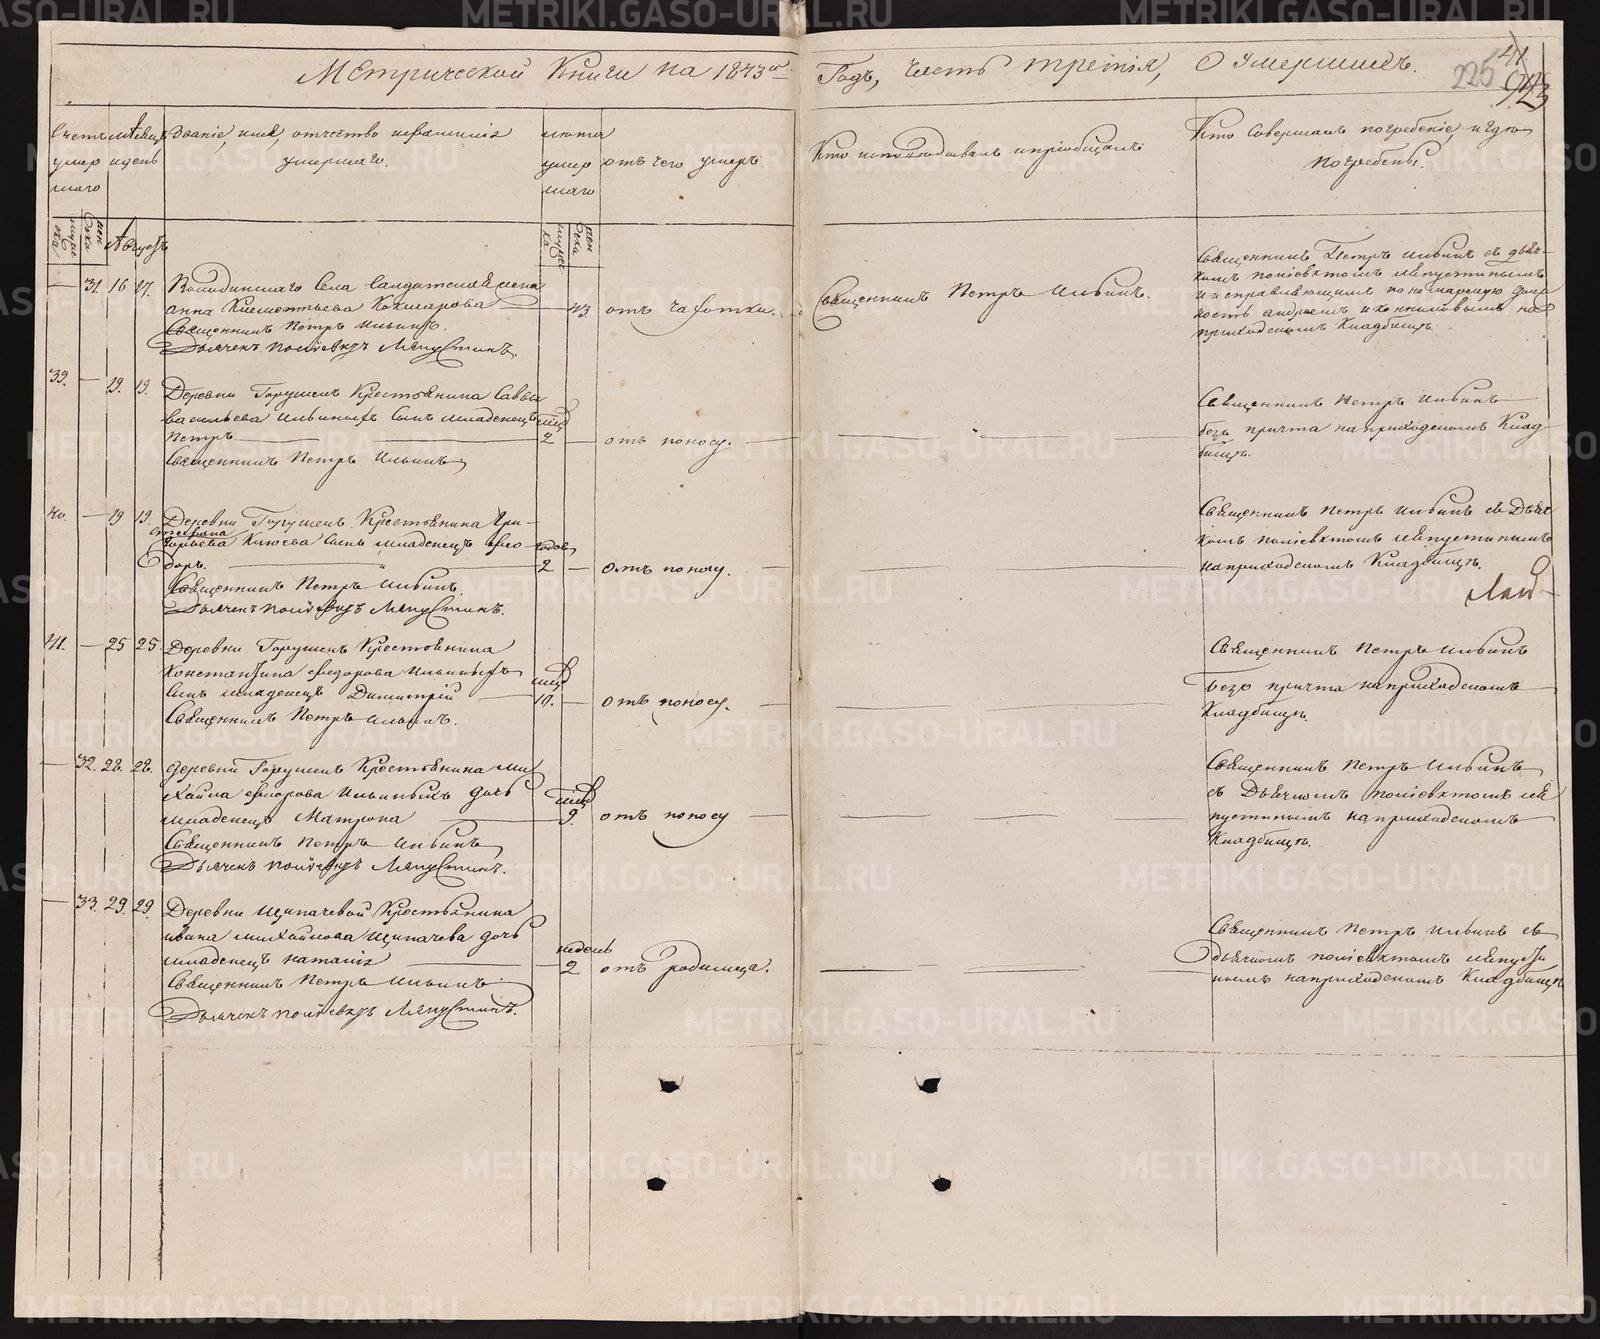 Метрической Книги на 1843й
Годъ, Часть третія, О Умершихъ.
225
41
923
Счетъ
умер
шаго
мѣсяцъ
и день
Званіе, имя, отчество и фамилія
умершаго.
лѣта
умер
шаго
отъ чего умеръ.
Кто исповѣдывалъ и пріобщалъ
Кто Совершалъ погребеніе и гдѣ
Погребены.
Августъ
— 31. 16 17.
Сала Салдатская жена
Анна Климентьева
Священникъ Петръ Ильинъ.
Дьячекъ Поліевктъ Ляпустинъ.
43. отъ чахотки.
Священникъ Петръ Ильинъ.
Священникъ Петръ Ильинъ съ дьяч-
комъ Поліевктомъ Ляпустинымъ
и исправляющимъ пономарскую долж
ность Андреемъ Иконниковымъ на
приходскомъ Кладбищѣ.
39. — 19. 19.
Деревни Горушекъ Крестьянина Саввы
Васильева Ильиныхъ Сынъ младенецъ
Петръ
Священникъ Петръ Ильинъ
2 — отъ поносу.
Священникъ Петръ Ильинъ
безъ причта на приходскомъ Клад-
бищѣ.
40. — 19 19.
Деревни Горушекъ Крестьянина Гри-
Стефана
горьева Клюева Сынъ младенецъ Фео-
доръ.
Священникъ Петръ Ильинъ.
Дьячекъ Поліевктъ Ляпустинъ.
годов
2 — отъ поносу.
Священникъ Петръ Ильинъ съ Дьяч
комъ Поліевктомъ Ляпустинымъ
на приходскомъ Кладбищѣ.
41. — 25 25.
Деревни Горушекъ Крестьянина
Константина Федорова Ильиныхъ
Сынъ младенецъ Димитрій
Священникъ Петръ Ильинъ.
10. — отъ поносу.
Священникъ Петръ Ильинъ
безъ причта на приходскомъ
Кладбищѣ.
— 32. 28. 28.
Деревни Горушекъ Крестьянина Ми
хайла Федорова Ильиныхъ дочь
младенецъ Матрона
Священникъ Петръ Ильинъ
Дьячекъ Поліевктъ Ляпустинъ.
9. отъ поносу
Священникъ Петръ Ильинъ
съ Дьячкомъ Поліевктомъ Ля
пустинымъ на приходскомъ
Кладбищѣ.
— 33. 29. 29.
Деревни Щипачевой Крестьянина
Ивана Михайлова Щипачева дочь
младенецъ Наталія
Священникъ Петръ Ильинъ
Дьячекъ Поліевктъ Ляпустинъ.
недель
2 отъ родимца.
Священникъ Петръ Ильинъ съ
дьячкомъ Поліевктомъ Ляпусти
нымъ на приходскомъ Кладбищѣ
METRIKI.GASO-URAL.RU